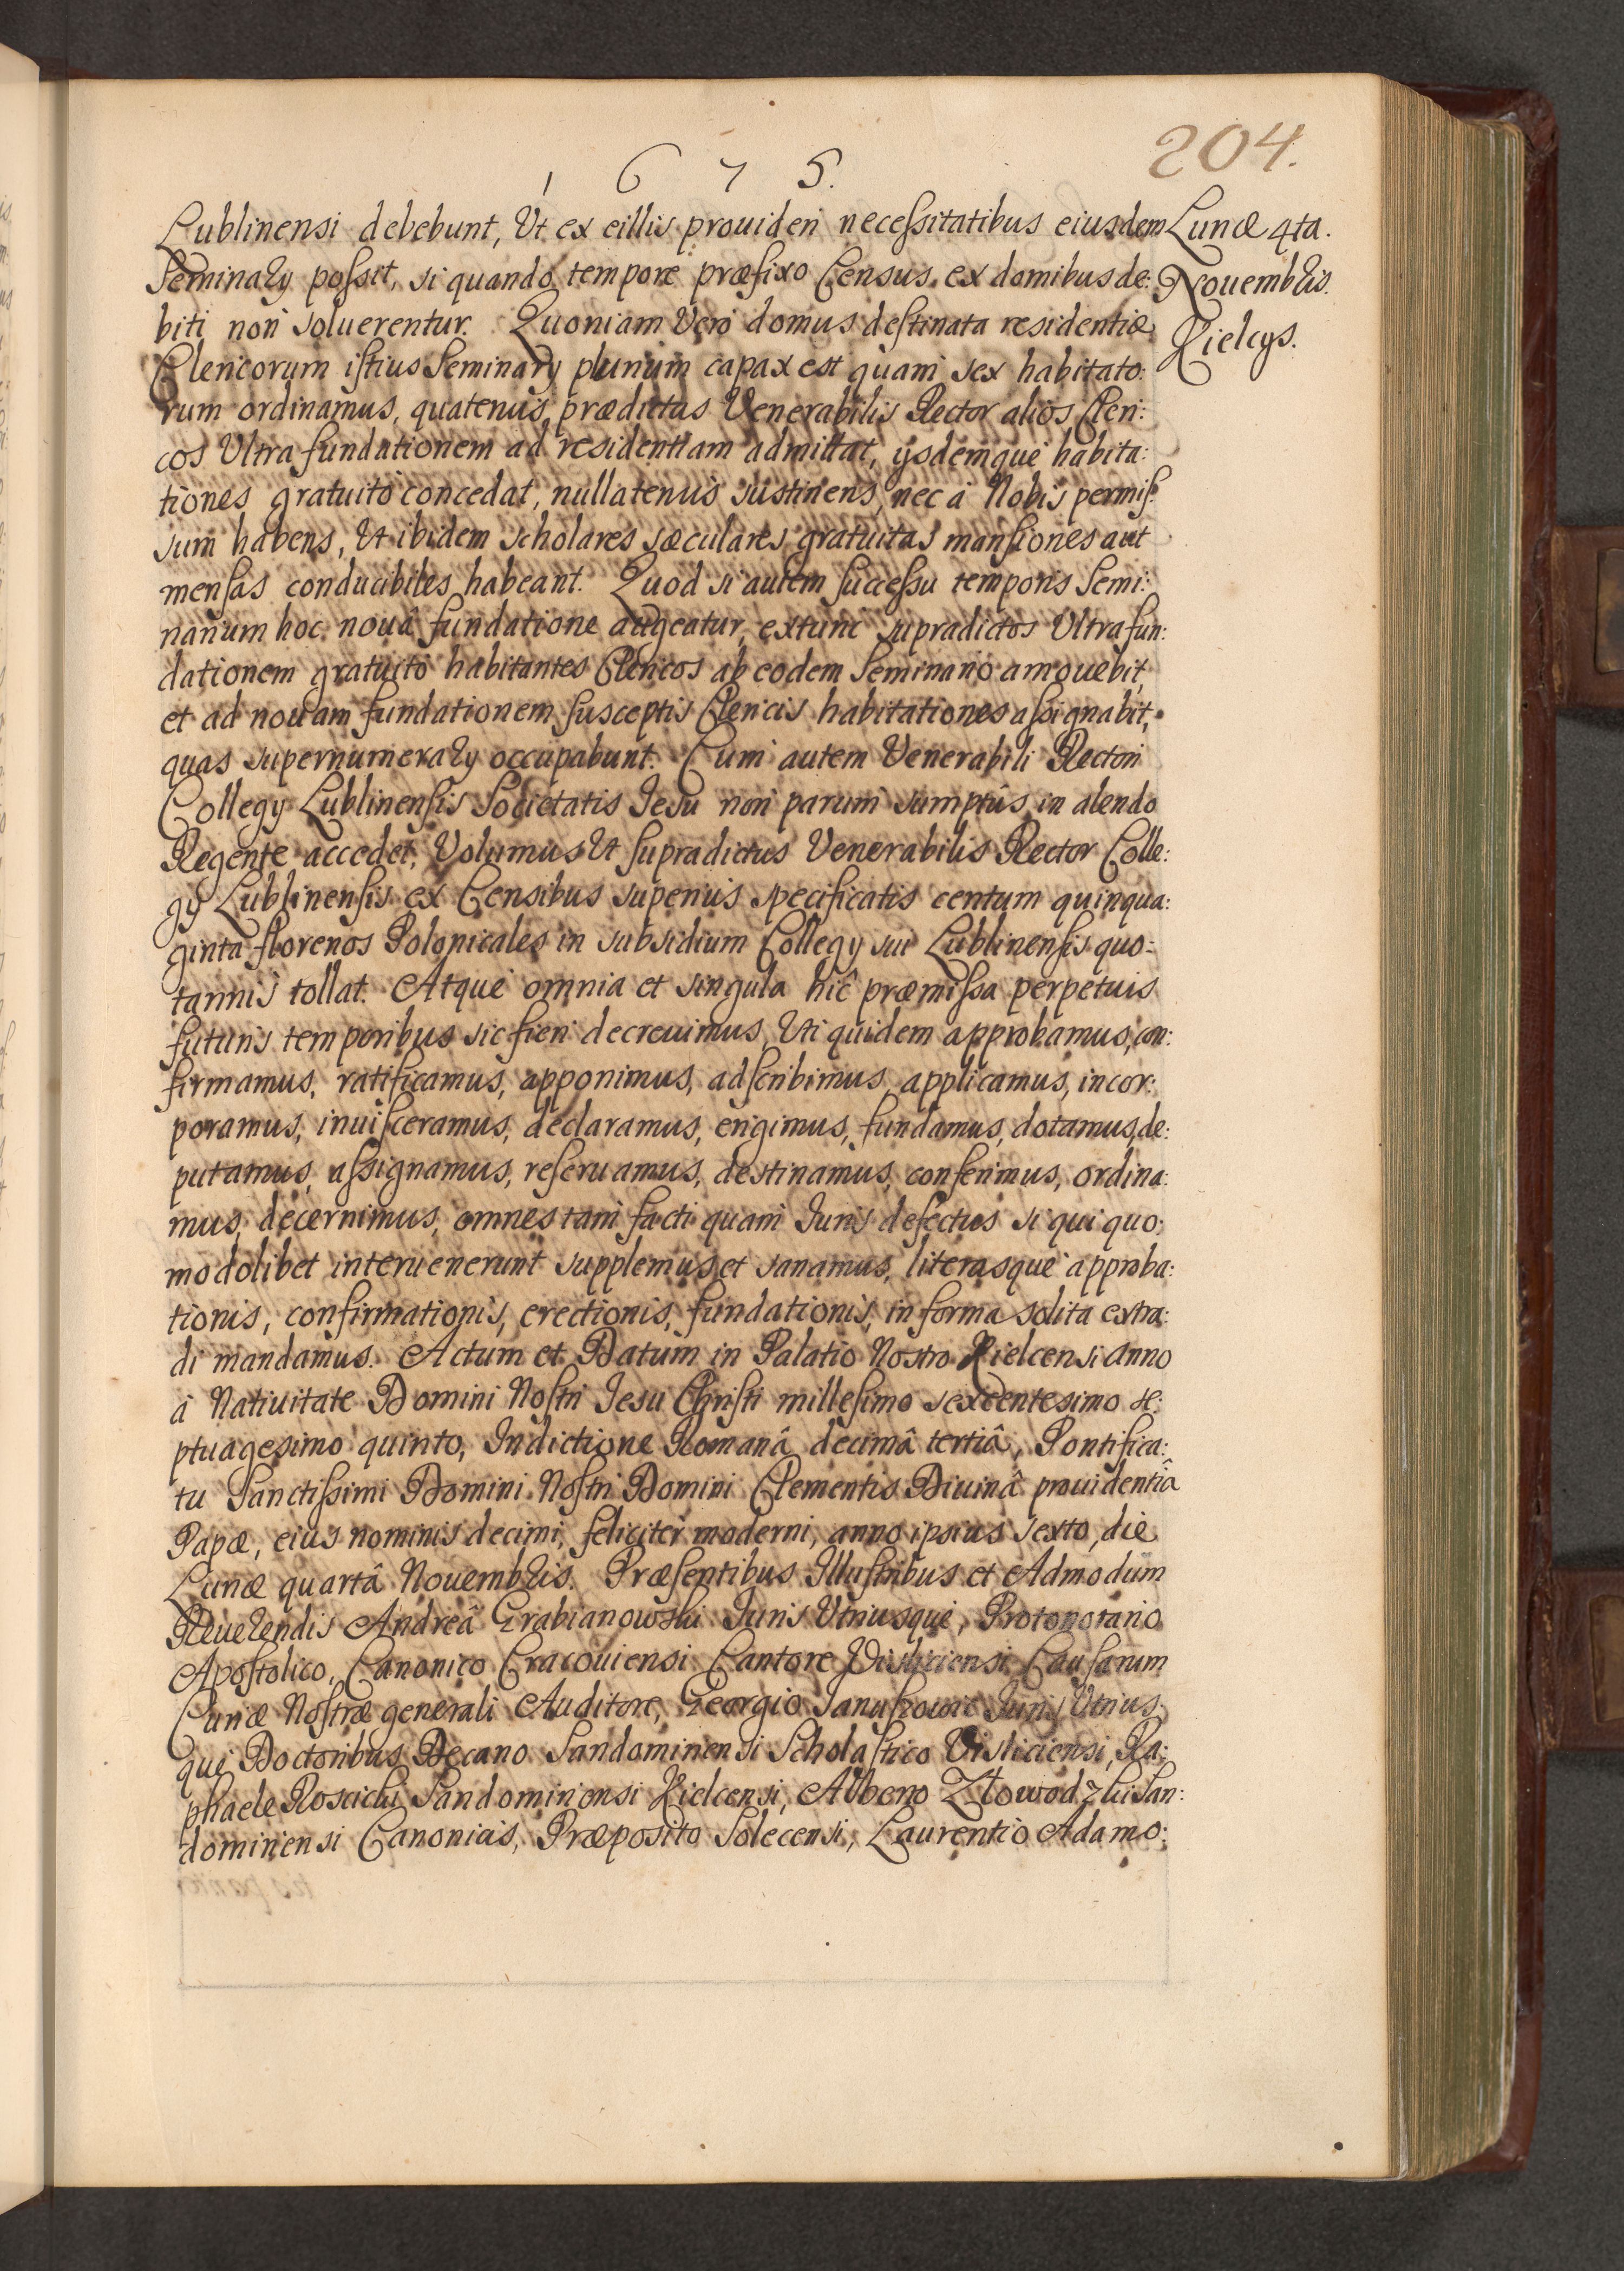 204.
1 6 7 5.
Lublinensi debebunt, Vt ex eillis prouideri necessitatibus eiusdem
Lunæ 4ta.
Nouembris.
Kielcys.
Seminary possit, si quando tempore præfixo Census ex domibus de:
biti non soluerentur. Quoniam Vero domus destinata residentiæ
Clericorum istius Seminary plurium capax est quam sex habitato:
rum ordinamus, quatenus prædictus Venerabilis Rector alios Cleri:
cos Vltra fundationem ad residentiam admittat, ysdemque habita:
tiones gratuito concedat, nullatenus sustinens, nec à Nobis permis:
sum habens, Vt ibidem scholares sæculares gratuitas mansiones aut
mensas conducibiles habeant. Quod si autem successu temporis Semi:
narium hoc nouâ fundatione augeatur, extunc supradictos Vltra fun:
dationem gratuito habitantes Clericos ab eodem Seminario amouebit,
et ad nouam fundationem susceptis Clericis habitationes assignabit,
quas supernumerary occupabunt. Cum autem Venerabili Rectori
Collegy Lublinensis Societatis Iesu non parum sumptûs in alendo
Regente accedet, Volumus Vt supradictus Venerabilis Rector Colle:
gy Lublinensis ex Censibus superius specificatis centum quinqua:
ginta florenos Polonicales in subsidium Collegy sui Lublinensis quo:
tannis tollat. Atque omnia et singula hîc præmissa perpetuis
futuris temporibus sic fieri decreuimus, Vti quidem approbamus, con:
firmamus, ratificamus, apponimus, adscribimus, applicamus, incor:
poramus, inuisceramus, declaramus, erigimus, fundamus, dotamus, de:
putamus, assignamus, reseruamus, destinamus, conferimus, ordina:
mus, decernimus, omnes tam facti quam Iuris defectus si qui quo:
modolibet interuenerunt supplemus et sanamus, literasque approba:
tionis, confirmationis, erectionis, fundationis, in forma solita extra:
di mandamus. Actum et Datum in Palatio Nostro Kielcensi anno
à Natiuitate Domini Nostri Iesu Christi millesimo sexcentesimo se:
ptuagesimo quinto, Indictione Romanâ decimâ tertiâ, Pontifica:
tu Sanctissimi Domini Nostri Domini Clementis Diuinâ prouidentiâ
Papæ, eius nominis decimi, feliciter moderni, anno ipsius sexto, die
Lunæ quartâ Nouembris. Præsentibus Illustribus et Admodum
Reuerendis Andreâ Grabianowski Iuris Vtriusque, Protonotario
Apostolico, Canonico Cracouiensi Cantore Visliciensi Causarum
Curiæ Nostræ generali Auditore, Georgio Ianuszowic Iuris Vtrius:
que Doctoribus Decano Sandomiriensi Scholastico Visliciensi, Ra:
phaele Roscicki Sandomiriensi Kielcensi, Alberto Złowodzki San:
domiriensi Canonicis, Præposito Solecensi, Laurentio Adamo: